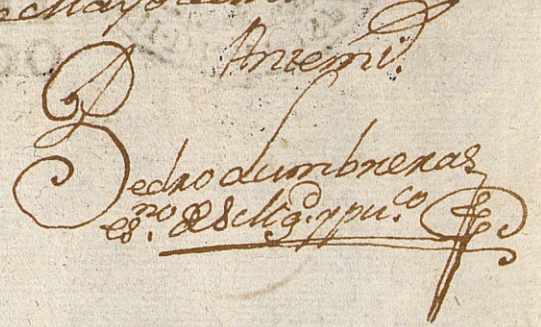 Ante mi.
Pedro Lumbreras
es.no de S Mg.d y pu.co